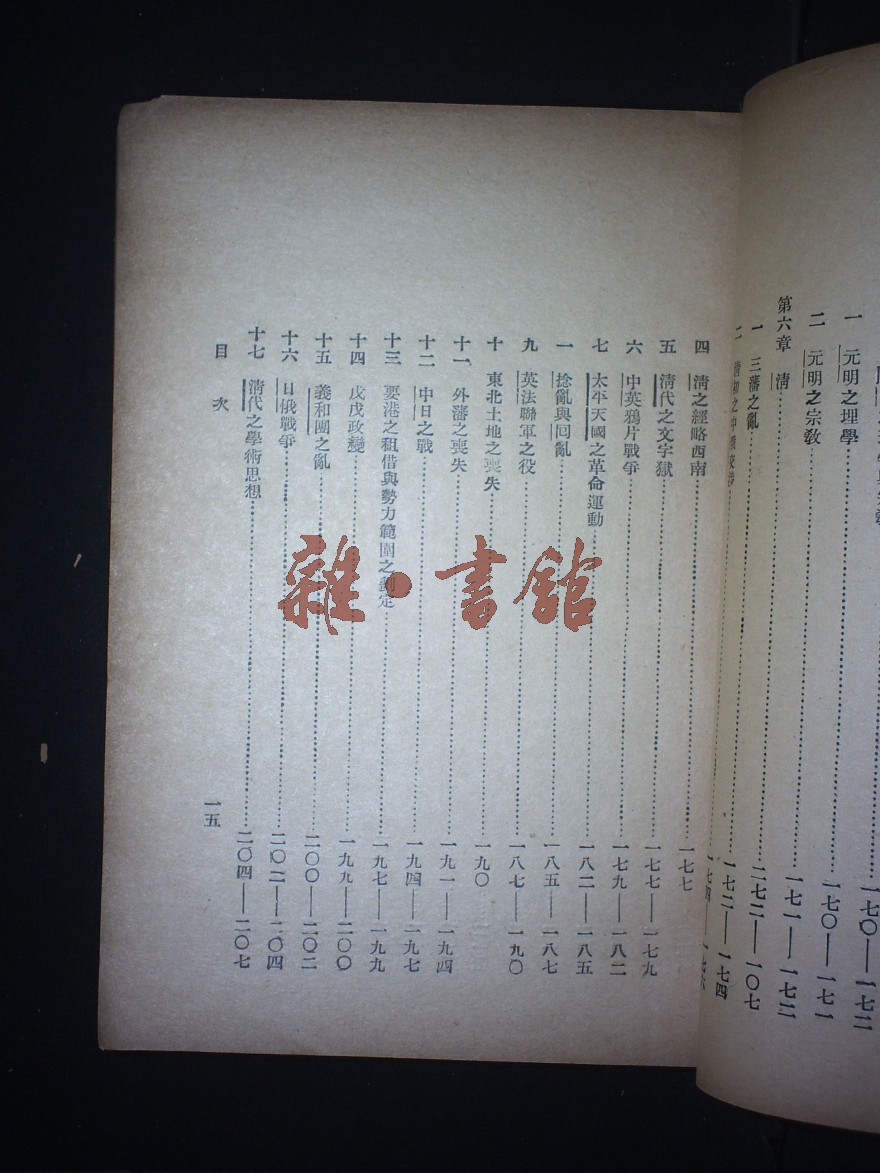 一 元明之理學……一七〇——一七二
二 元明之宗教……一七〇——一七一
第六章 清……一七一——一七二
一 三藩之亂……一七二——一〇七
二 清初之中俄交涉……一七二——一七四
一七四——一七六
四 清之經略西南……一七七
五 清代之文字獄……一七七——一七九
六 中英鴉片戰爭……一七九——一八二
七 太平天國之革命運動……一八二——一八五
一 捻亂與回亂……一八五——一八七
九 英法聯軍之役……一八七——一九〇
十 東北土地之喪失……一九〇
十一 外藩之喪失……一九一——一九四
十二 中日之戰……一九四——一九七
十三 要港之租借與勢力範圍之劃定……一九七——一九九
十四 戊戌政變……一九九——二〇〇
十五 義和團之亂……二〇〇——二〇二
十六 日俄戰爭……二〇二——二〇四
十七 清代之學術思想……二〇四——二〇七
目次 一五
雜·書館